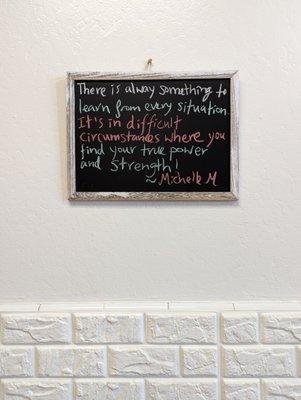 There is alway something to
learn from every situation.
It's in difficult
circumstances where you
find your true power
and strength!
~Michelle M